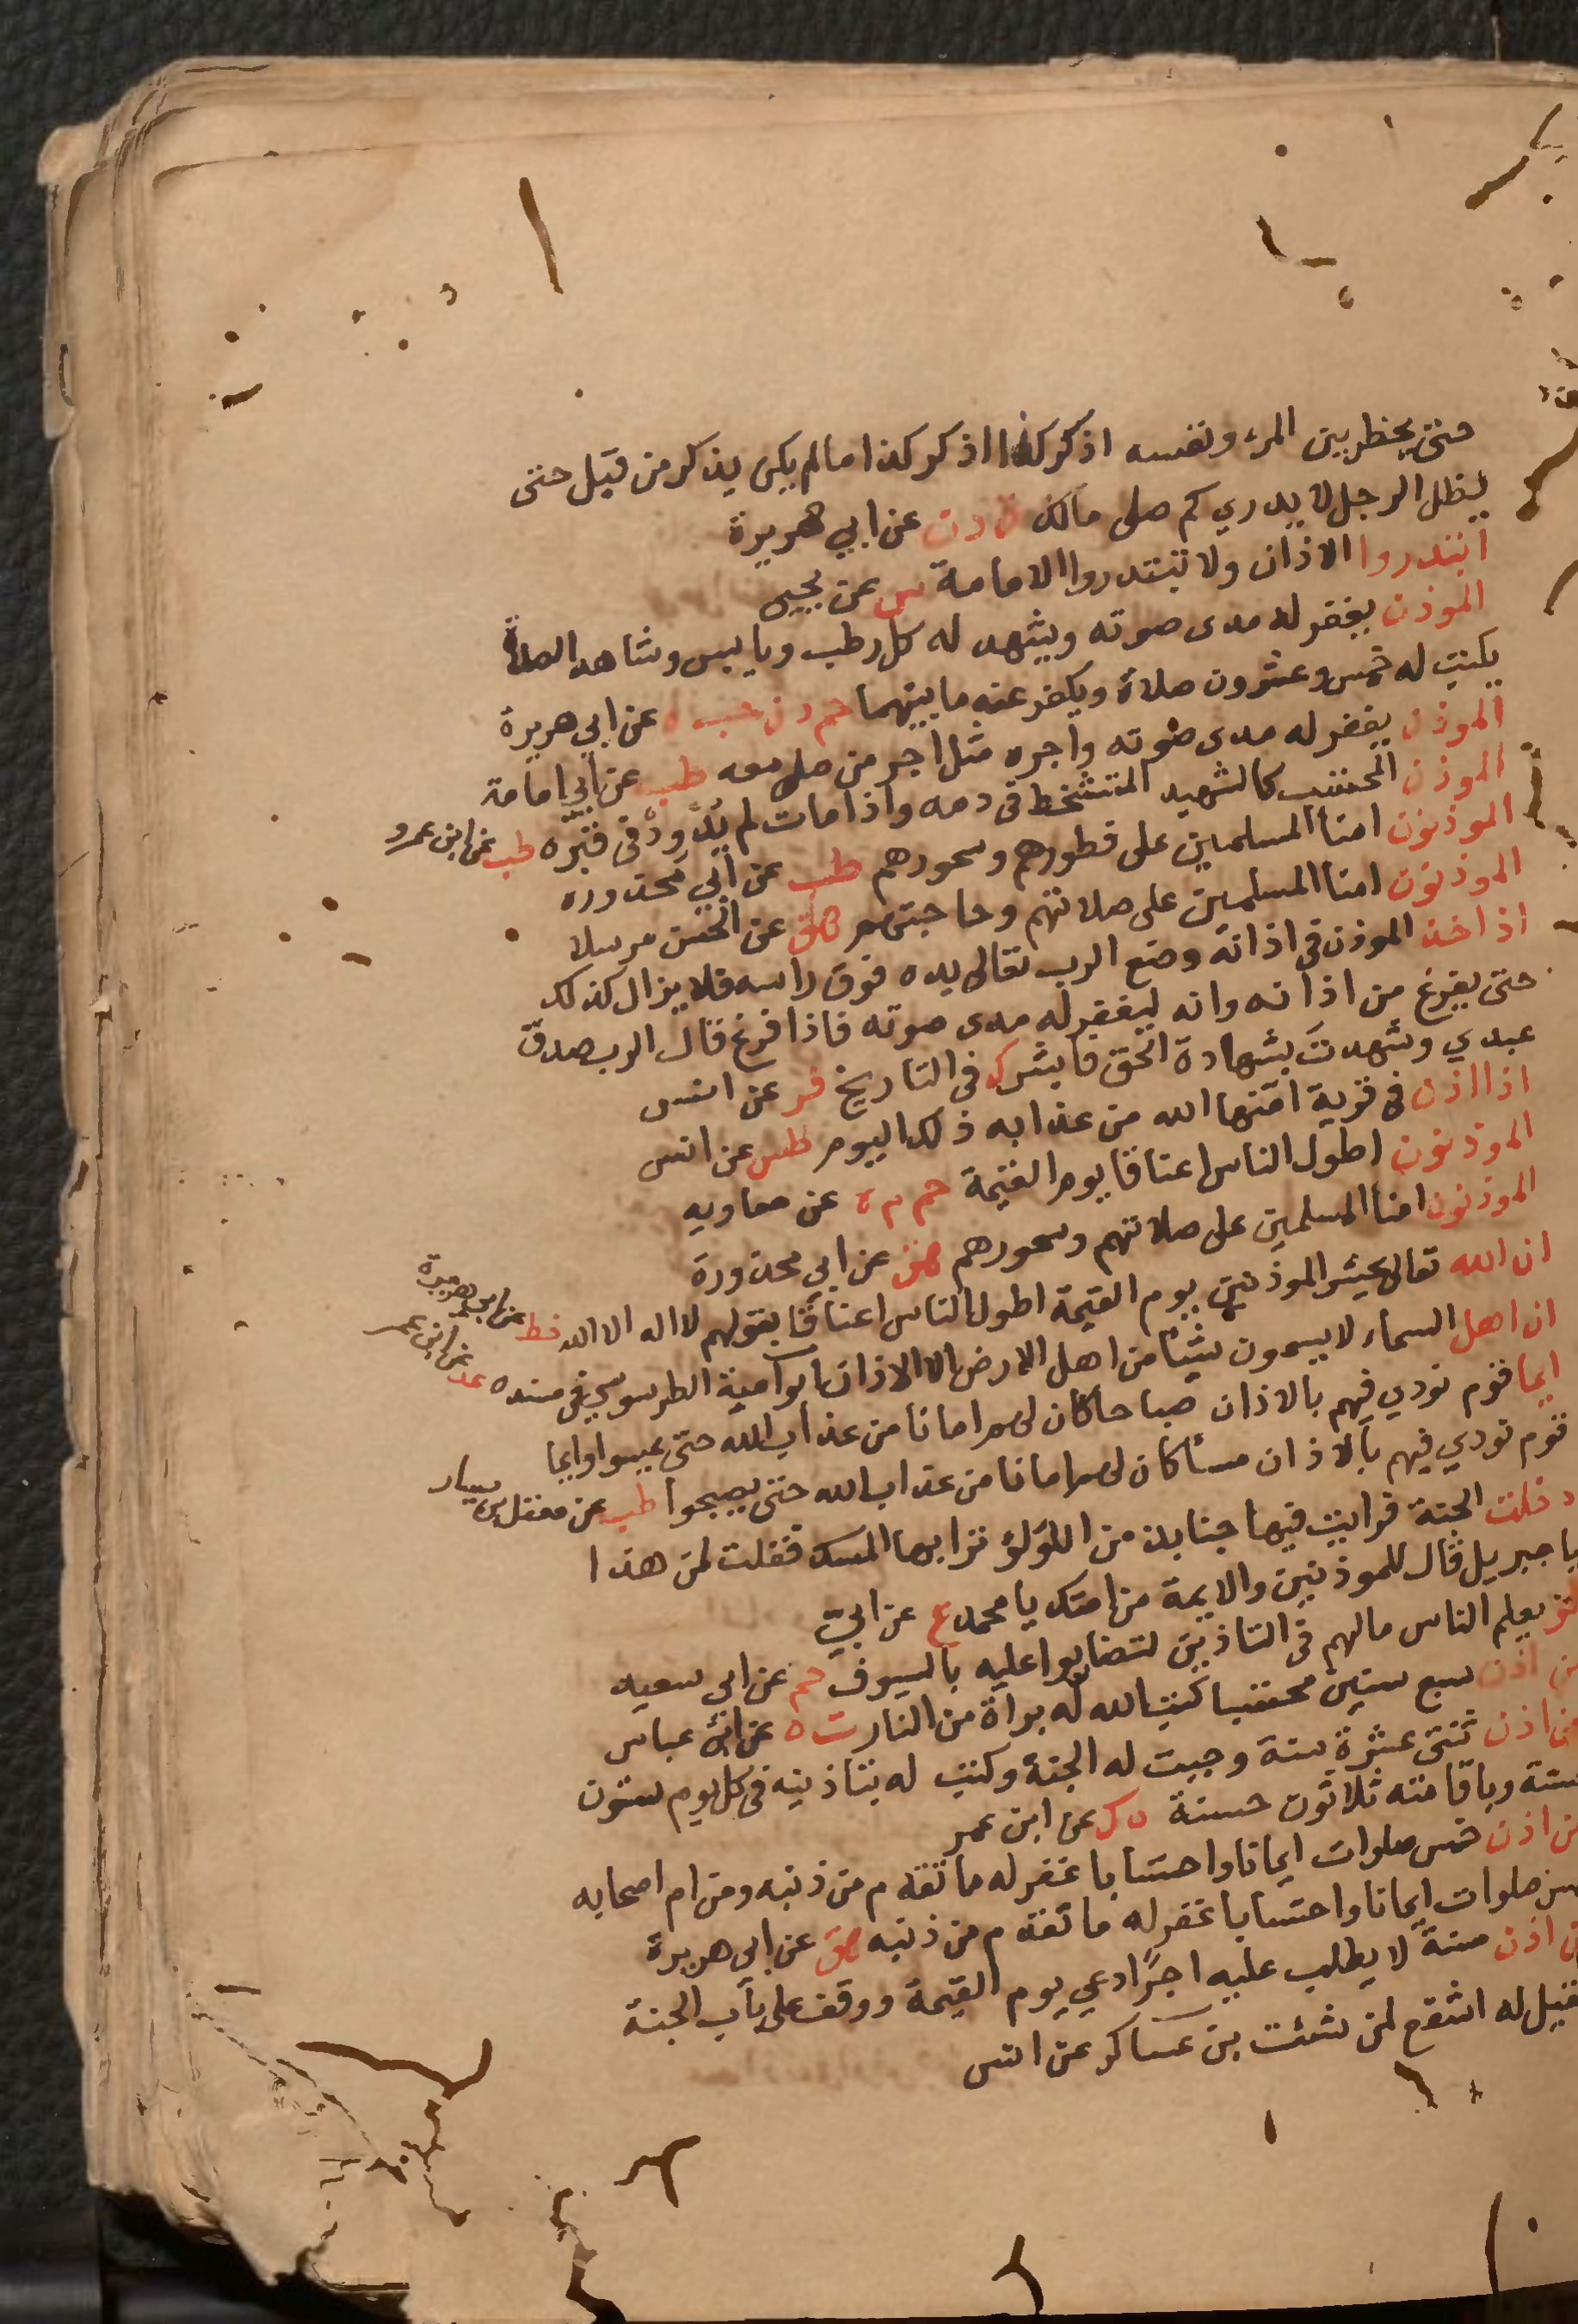 حتى يخطر بين المرء ونفسه اذكر كذا اذكر كذا ما لم يكن يذكر من قبل حتى
يظل الرجل لا يدري كم صلى مالك ق د ن عن ابي هريرة
ابتدروا الاذان ولا تبتدروا الامامة ش عن يحيى
الموذن يغفر له مدى صوته ويشهد له كل رطب ويابس وشاهد الصلاة
يكتب له خمس وعشرون صلاة ويكفر عنه ما بينهما حم د ن حب ه عن ابي هريرة
الموذن يغفر له مدى صوته واجره مثل اجر من صلى معه طب عن ابي امامة
الموذن المحتسب كالشهيد المتشخط في دمه واذا مات لم يدود في قبره طب عن ابن عمرو
الموذنون امنا المسلمين على فطورهم وسحورهم طب عن ابي محذوره
الموذنون امنا المسلمين على صلاتهم وحاجتهم هق عن الحسن مرسلا
اذا اخذ الموذن في اذانه وضع الرب تعالى يده فوق راسه فلا يزال كذلك
حتى يفرغ من اذانه وانه ليغفر له مدى صوته فاذا فرغ قال الرب صدق
عبدي وشهدت بشهادة الحق فابشر ك في التاريخ فر عن انس
اذا اذن في قرية امنها الله من عذابه ذلك اليوم طس عن انس
الموذنون اطول الناس اعناقا يوم القيمة حم م ه عن معاويه
الموذنون امنا المسلمين على صلاتهم وسحورهم هق عن ابي محذورة
ان الله تعالى يحشر الموذنين يوم القيمة اطول الناس اعناقا بقولهم لا اله الا الله خط عن ابي هريرة
ان اهل السماء لا يسمعون شيئا من اهل الارض الا الاذان ابو امية الطرسوسي في مسنده عد عن ابن عمر
ايما قوم نودي فيهم بالاذان صباحا كان لهم امانا من عذاب الله حتى يمسوا وايما
قوم نودي فيهم بالاذان مسأ كان لهم امانا من عذاب الله حتى يصبحوا طب عن معقل بن يسار
دخلت الجنة فرايت فيها جنابذ من اللؤلؤ ترابها المسك فقلت لمن هذا
يا جبريل قال للموذنين والايمة من امتك يا محمد ع عن ابيّ
لو يعلم الناس ما لهم في التاذين لتضاربوا عليه بالسيوف حم عن ابي سعيد
من اذن سبع سنين محتسبا كتب الله له براة من النار ت ه عن ابن عباس
من اذن ثنتى عشرة سنة وجبت له الجنة وكتب له بتاذينه في كل يوم ستون
حسنة وباقامته ثلاثون حسنة ه ك عن ابن عمر
من اذن خمس صلوات ايمانا واحتسابا غفر له ما تقدم من ذنبه ومن ام اصحابه
خمس صلوات ايمانا واحتسابا غفر له ما تقدم من ذنبه هق عن ابي هريرة
من اذن سنة لا يطلب عليه اجرًا دعي يوم القيمة ووقف على باب الجنة
فقيل له اشفع لمن شئت بن عساكر عن انس